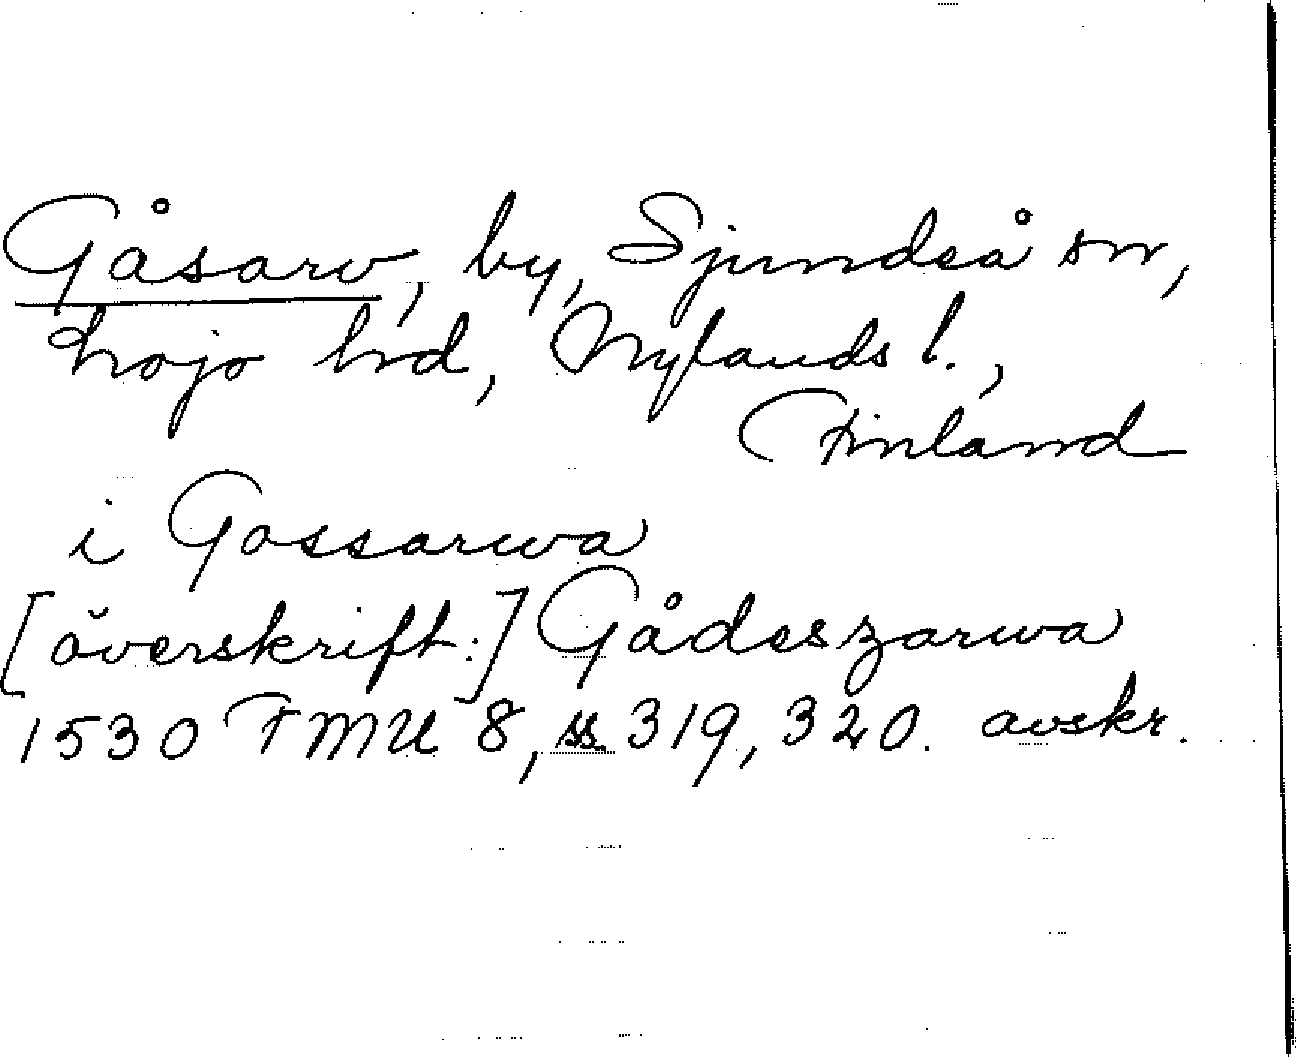 Gåsarv, by, Sjundeå sn,
Lojo hrd, Nylands l.,
Finland
i Gossarwa
[överskrift:] Gådeszarwa
1530 FMU 8, ss. 319, 320. avskr.